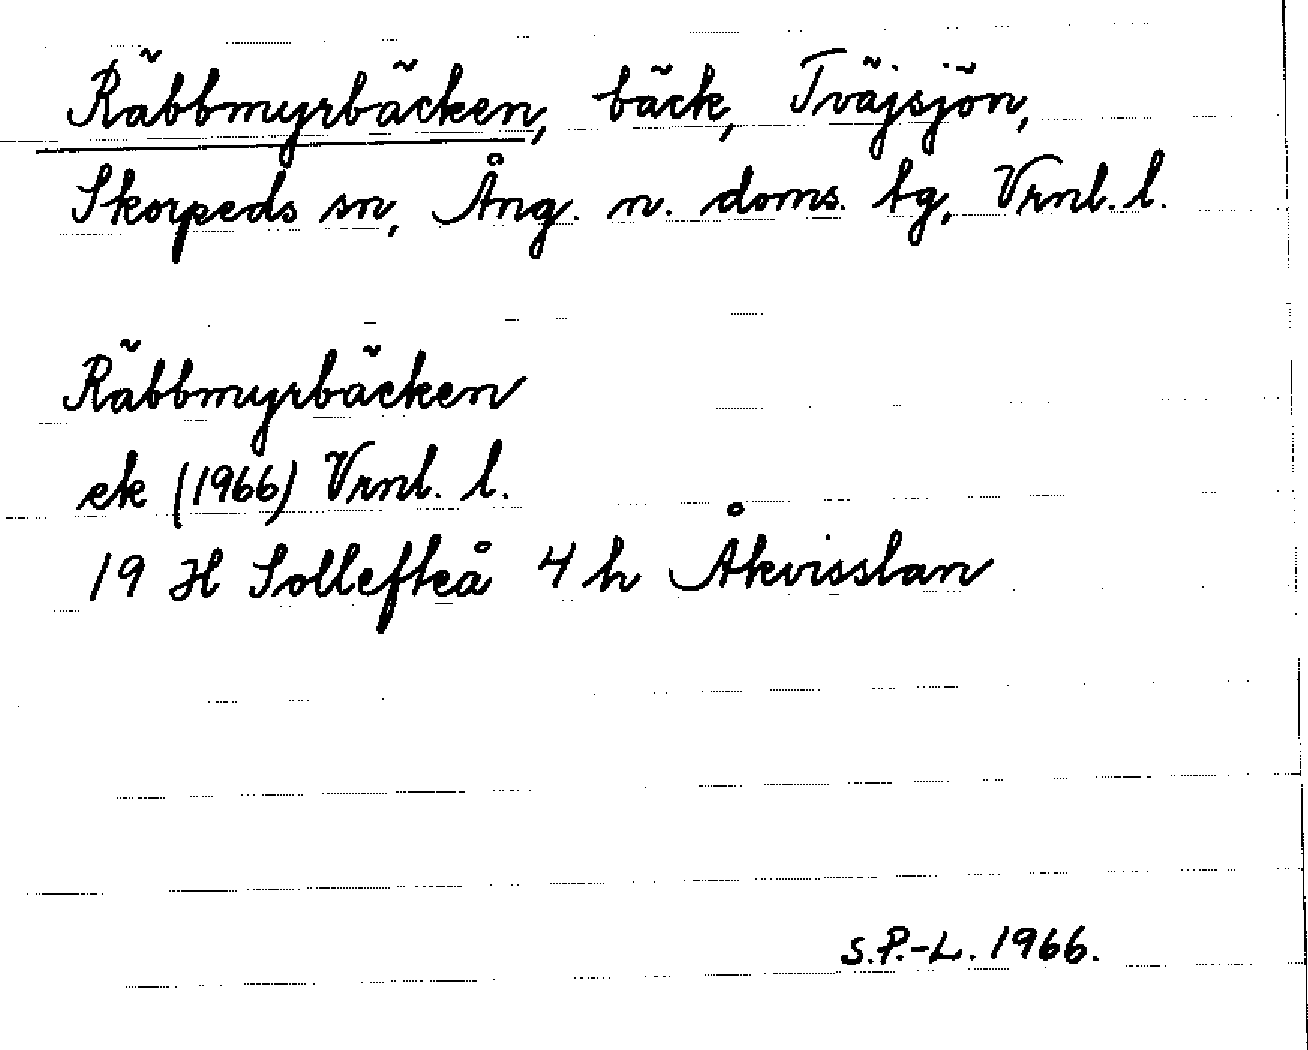 Räbbmyrbäcken, bäck, Tväjsjön,
Skorpeds sn, Ång. n. doms. tg, Vrnl. l.
Räbbmyrbäcken
ek (1966) Vrnl. l.
19 H Sollefteå 4 h Åkvisslan
S.P.-L. 1966.